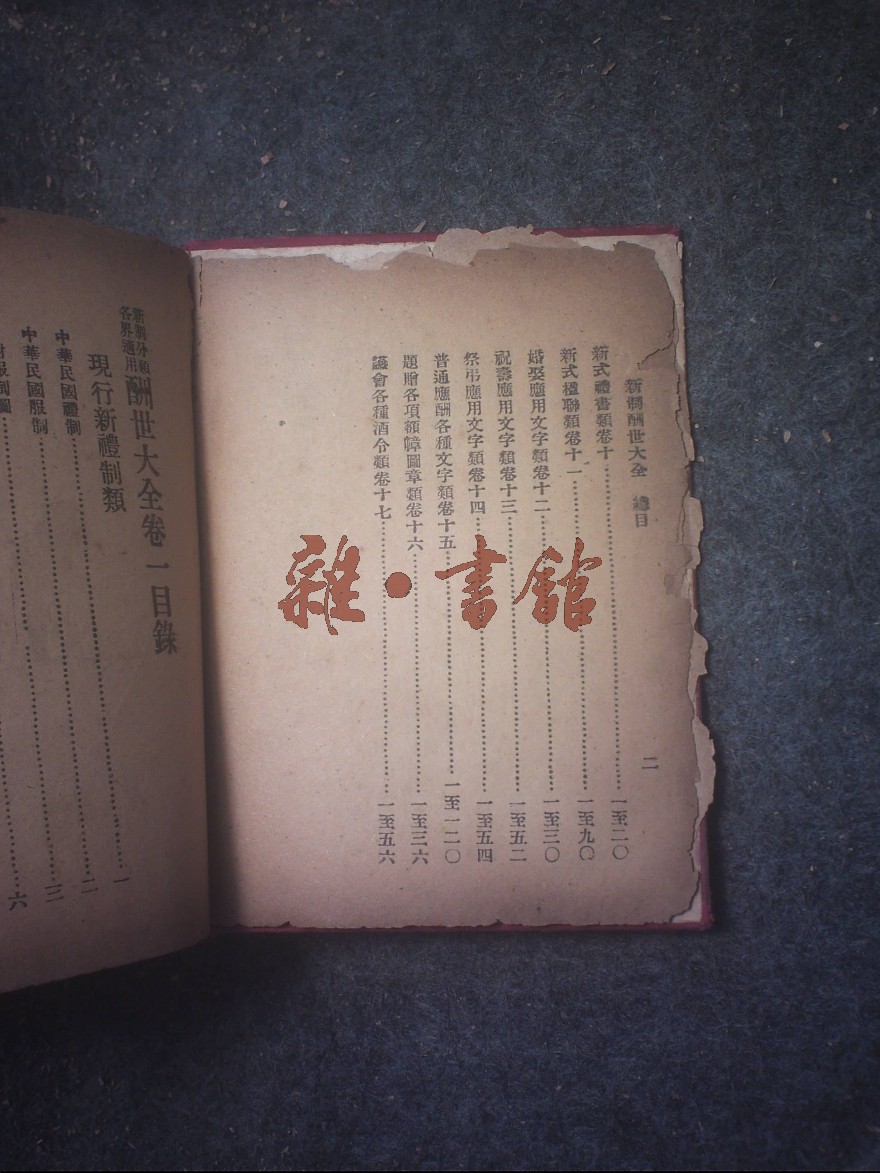 新制酬世大全　總目
二
新式禮書類卷十⋯⋯一至二〇
新式楹聯類卷十一⋯⋯一至九〇
婚娶應用文字類卷十二⋯⋯一至三〇
祝壽應用文字類卷十三⋯⋯一至五二
祭弔應用文字類卷十四⋯⋯一至五四
普通應酬各種文字類卷十五⋯⋯一至一二〇
題贈各項額幛圖章類卷十六⋯⋯一至三六
讌會各種酒令類卷十七⋯⋯一至五六
新制分類
各界適用
酬世大全卷一目錄
現行新禮制類⋯⋯一
中華民國禮制⋯⋯二
中華民國服制⋯⋯三
服制圖⋯⋯六
雜·書館